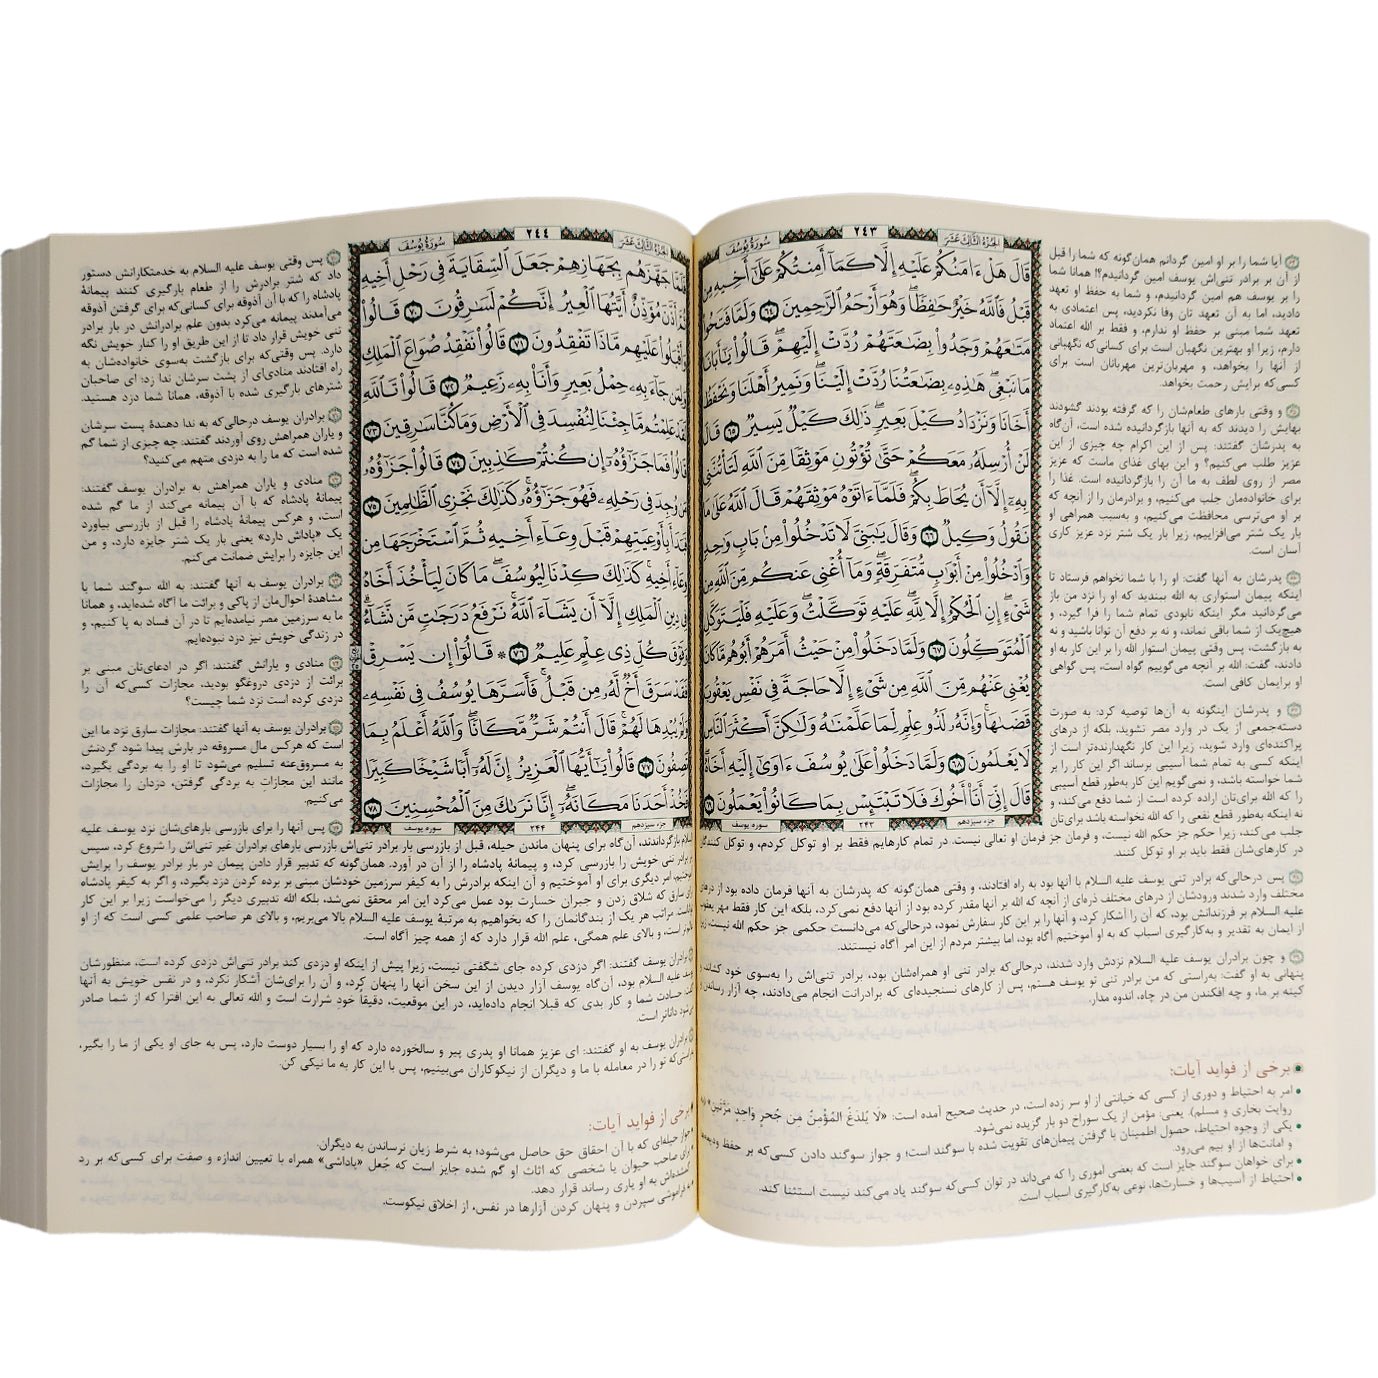 الجزء الثالث عشر
٢٤٣
سورة يوسف
قَالَ هَلْ ءَامَنُكُمْ عَلَيْهِ إِلَّا كَمَآ أَمِنتُكُمْ عَلَىٰٓ أَخِيهِ مِن
قَبْلُ فَٱللَّهُ خَيْرٌ حَٰفِظًا وَهُوَ أَرْحَمُ ٱلرَّٰحِمِينَ ٦٤ وَلَمَّا فَتَحُوا۟
مَتَٰعَهُمْ وَجَدُوا۟ بِضَٰعَتَهُمْ رُدَّتْ إِلَيْهِمْ قَالُوا۟ يَٰٓأَبَانَا
مَا نَبْغِى هَٰذِهِۦ بِضَٰعَتُنَا رُدَّتْ إِلَيْنَا وَنَمِيرُ أَهْلَنَا وَنَحْفَظُ
أَخَانَا وَنَزْدَادُ كَيْلَ بَعِيرٍ ذَٰلِكَ كَيْلٌ يَسِيرٌ ٦٥ قَالَ
لَنْ أُرْسِلَهُۥ مَعَكُمْ حَتَّىٰ تُؤْتُونِ مَوْثِقًا مِّنَ ٱللَّهِ لَتَأْتُنَّنِى
بِهِۦٓ إِلَّآ أَن يُحَاطَ بِكُمْ فَلَمَّآ ءَاتَوْهُ مَوْثِقَهُمْ قَالَ ٱللَّهُ عَلَىٰ مَا
نَقُولُ وَكِيلٌ ٦٦ وَقَالَ يَٰبَنِىَّ لَا تَدْخُلُوا۟ مِنۢ بَابٍ وَٰحِدٍ
وَٱدْخُلُوا۟ مِنْ أَبْوَٰبٍ مُّتَفَرِّقَةٍ وَمَآ أُغْنِى عَنكُم مِّنَ ٱللَّهِ مِن
شَىْءٍ إِنِ ٱلْحُكْمُ إِلَّا لِلَّهِ عَلَيْهِ تَوَكَّلْتُ وَعَلَيْهِ فَلْيَتَوَكَّلِ
ٱلْمُتَوَكِّلُونَ ٦٧ وَلَمَّا دَخَلُوا۟ مِنْ حَيْثُ أَمَرَهُمْ أَبُوهُم مَّا كَانَ
يُغْنِى عَنْهُم مِّنَ ٱللَّهِ مِن شَىْءٍ إِلَّا حَاجَةً فِى نَفْسِ يَعْقُوبَ
قَضَىٰهَا وَإِنَّهُۥ لَذُو عِلْمٍ لِّمَا عَلَّمْنَٰهُ وَلَٰكِنَّ أَكْثَرَ ٱلنَّاسِ
لَا يَعْلَمُونَ ٦٨ وَلَمَّا دَخَلُوا۟ عَلَىٰ يُوسُفَ ءَاوَىٰٓ إِلَيْهِ أَخَاهُ
قَالَ إِنِّىٓ أَنَا۠ أَخُوكَ فَلَا تَبْتَئِسْ بِمَا كَانُوا۟ يَعْمَلُونَ ٦٩
جزء سیزدهم
۲۴۳
سوره یوسف
آیا شما را بر او امین گردانم همان‌گونه که شما را قبل
از آن بر برادر تنی‌اش یوسف امین گردانیدم؟! همانا شما
را بر یوسف هم امین گردانیدم، و شما به حفظ او تعهد
دادید، اما به آن تعهد تان وفا نکردید، پس اعتمادی به
تعهد شما مبنی بر حفظ او ندارم، و فقط بر الله اعتماد
دارم، زیرا او بهترین نگهبان است برای کسانی‌که نگهبانی
از آنها را بخواهد، و مهربان‌ترین مهربانان است برای
کسی‌که برایش رحمت بخواهد.
و وقتی بارهای طعام‌شان را که گرفته بودند گشودند
بهایش را دیدند که به آنها بازگردانیده شده است، آن‌گاه
به پدرشان گفتند: پس از این اکرام چه چیزی از این
عزیز طلب می‌کنیم؟ و این بهای غذای ماست که عزیز
مصر از روی لطف به ما آن را بازگردانیده است. غذا را
برای خانواده‌مان جلب می‌کنیم، و برادرمان را از آنچه که
بر او می‌ترسی محافظت می‌کنیم، و به‌سبب همراهی او
بار یک شتر می‌افزاییم، زیرا بار یک شتر نزد عزیز کاری
آسان است.
پدرشان به آنها گفت: او را با شما نخواهم فرستاد تا
اینکه پیمان استواری به الله ببندید که او را نزد من باز
می‌گردانید مگر اینکه نابودی تمام شما را فرا گیرد، و
هیچ‌یک از شما باقی نماند، و نه بر دفع آن توانا باشید و نه
به بازگشت، پس وقتی پیمان استوار الله را بر این کار به او
دادند، گفت: الله بر آنچه می‌گوییم گواه است، پس گواهی
او برایمان کافی است.
و پدرشان اینگونه به آن‌ها توصیه کرد: به صورت
دسته‌جمعی از یک در وارد مصر نشوید، بلکه از درهای
پراکنده‌ای وارد شوید، زیرا این کار نگهدارنده‌تر است از
اینکه کسی به تمام شما آسیبی برساند اگر این کار را بر
شما خواسته باشد، و نمی‌گویم این کار به‌طور قطع آسیبی
را که الله برای‌تان اراده کرده است از شما دفع می‌کند، و
نه اینکه به‌طور قطع نفعی را که الله نخواسته باشد برای‌تان
جلب می‌کند، زیرا حکم جز حکم الله نیست، و فرمان جز فرمان او تعالی نیست. در تمام کارهایم فقط بر او توکل کردم، و توکل کنندگان
در کارهای‌شان فقط باید بر او توکل کنند.
پس درحالی‌که برادر تنی یوسف علیه السلام با آنها بود به راه افتادند، و وقتی همان‌گونه که پدرشان به آنها فرمان داده بود از درهای
مختلف وارد شدند ورودشان از درهای مختلف ذره‌ای از آنچه که الله بر آنها مقدر کرده بود از آنها دفع نمی‌کرد، بلکه این کار فقط مهر یعقوب
علیه السلام بر فرزندانش بود، که آن را آشکار کرد، و آنها را بر این کار سفارش نمود، درحالی‌که می‌دانست حکمی جز حکم الله نیست، زیرا
از ایمان به تقدیر و به‌کارگیری اسباب که به او آموختیم آگاه بود، اما بیشتر مردم از این امر آگاه نیستند.
و چون برادران یوسف علیه السلام نزدش وارد شدند، درحالی‌که برادر تنی او همراه‌شان بود، برادر تنی‌اش را به‌سوی خود کشاند، و
پنهانی به او گفت: به‌راستی که من برادر تنی تو یوسف هستم، پس از کارهای نسنجیده‌ای که برادرانت انجام می‌دادند، چه آزار رساندن و
کینه بر ما، و چه افکندن من در چاه، اندوه مدار.
برخی از فواید آیات:
• امر به احتیاط و دوری از کسی که خیانتی از او سر زده است، در حدیث صحیح آمده است: «لَا يُلدَغُ المُؤْمِنُ مِن جُحرٍ وَاحِدٍ مَرَّتَينِ»
روایت بخاری و مسلم). یعنی: مؤمن از یک سوراخ دو بار گزیده نمی‌شود.
• یکی از وجوه احتیاط، حصول اطمینان با گرفتن پیمان‌های تقویت شده با سوگند است؛ و جواز سوگند دادن کسی‌که بر حفظ
و امانت‌ها از او بیم می‌رود.
• برای خواهان سوگند جایز است که بعضی اموری را که می‌داند در توان کسی‌که سوگند یاد می‌کند نیست استثنا کند.
• احتیاط از آسیب‌ها و خسارت‌ها، نوعی به‌کارگیری اسباب است.
الجزء الثالث عشر
٢٤٤
سورة يوسف
فَلَمَّا جَهَّزَهُم بِجَهَازِهِمْ جَعَلَ ٱلسِّقَايَةَ فِى رَحْلِ أَخِيهِ
ثُمَّ أَذَّنَ مُؤَذِّنٌ أَيَّتُهَا ٱلْعِيرُ إِنَّكُمْ لَسَٰرِقُونَ ٧٠ قَالُوا۟
وَأَقْبَلُوا۟ عَلَيْهِم مَّاذَا تَفْقِدُونَ ٧١ قَالُوا۟ نَفْقِدُ صُوَاعَ ٱلْمَلِكِ
وَلِمَن جَآءَ بِهِۦ حِمْلُ بَعِيرٍ وَأَنَا۠ بِهِۦ زَعِيمٌ ٧٢ قَالُوا۟ تَٱللَّهِ
لَقَدْ عَلِمْتُم مَّا جِئْنَا لِنُفْسِدَ فِى ٱلْأَرْضِ وَمَا كُنَّا سَٰرِقِينَ ٧٣
قَالُوا۟ فَمَا جَزَٰٓؤُهُۥٓ إِن كُنتُمْ كَٰذِبِينَ ٧٤ قَالُوا۟ جَزَٰٓؤُهُۥ
مَن وُجِدَ فِى رَحْلِهِۦ فَهُوَ جَزَٰٓؤُهُۥ كَذَٰلِكَ نَجْزِى ٱلظَّٰلِمِينَ ٧٥
فَبَدَأَ بِأَوْعِيَتِهِمْ قَبْلَ وِعَآءِ أَخِيهِ ثُمَّ ٱسْتَخْرَجَهَا مِن
وِعَآءِ أَخِيهِ كَذَٰلِكَ كِدْنَا لِيُوسُفَ مَا كَانَ لِيَأْخُذَ أَخَاهُ
فِى دِينِ ٱلْمَلِكِ إِلَّآ أَن يَشَآءَ ٱللَّهُ نَرْفَعُ دَرَجَٰتٍ مَّن نَّشَآءُ
وَفَوْقَ كُلِّ ذِى عِلْمٍ عَلِيمٌ ٧٦ ۞ قَالُوٓا۟ إِن يَسْرِقْ
فَقَدْ سَرَقَ أَخٌ لَّهُۥ مِن قَبْلُ فَأَسَرَّهَا يُوسُفُ فِى نَفْسِهِۦ
وَلَمْ يُبْدِهَا لَهُمْ قَالَ أَنتُمْ شَرٌّ مَّكَانًا وَٱللَّهُ أَعْلَمُ بِمَا
تَصِفُونَ ٧٧ قَالُوا۟ يَٰٓأَيُّهَا ٱلْعَزِيزُ إِنَّ لَهُۥٓ أَبًا شَيْخًا كَبِيرًا
فَخُذْ أَحَدَنَا مَكَانَهُۥٓ إِنَّا نَرَىٰكَ مِنَ ٱلْمُحْسِنِينَ ٧٨
جزء سیزدهم
۲۴۴
سوره یوسف
پس وقتی یوسف علیه السلام به خدمتکارانش دستور
داد که شتر برادرش را از طعام بارگیری کنند پیمانهٔ
پادشاه را که با آن آذوقه برای کسانی‌که برای گرفتن آذوقه
می‌آمدند پیمانه می‌کرد بدون علم برادرانش در بار برادر
تنی خویش قرار داد تا از این طریق او را کنار خویش نگه
دارد. پس وقتی‌که برای بازگشت به‌سوی خانواده‌شان به
راه افتادند منادی‌ای از پشت سرشان ندا زد: ای صاحبان
شترهای بارگیری شده با آذوقه، همانا شما دزد هستید.
برادران یوسف درحالی‌که به ندا دهندهٔ پست سرشان
و یاران همراهش روی آوردند گفتند: چه چیزی از شما گم
شده است که ما را به دزدی متهم می‌کنید؟
منادی و یاران همراهش به برادران یوسف گفتند:
پیمانهٔ پادشاه که با آن پیمانه می‌کند از ما گم شده
است، و هرکس پیمانهٔ پادشاه را قبل از بازرسی بیاورد
یک «پاداش دارد» یعنی بار یک شتر جایزه دارد، و من
این جایزه را برایش ضمانت می‌کنم.
برادران یوسف به آنها گفتند: به الله سوگند شما با
مشاهدهٔ احوال‌مان از پاکی و برائت ما آگاه شده‌اید، و همانا
ما به سرزمین مصر نیامده‌ایم تا در آن فساد به پا کنیم، و
در زندگی خویش نیز دزد نبوده‌ایم.
منادی و یارانش گفتند: اگر در ادعای‌تان مبنی بر
برائت از دزدی دروغگو بودید، مجازات کسی‌که آن را
دزدی کرده است نزد شما چیست؟
برادران یوسف به آنها گفتند: مجازات سارق نزد ما این
است که هرکس مال مسروقه در بارش پیدا شود گردنش
به مسروق‌عنه تسلیم می‌شود تا او را به بردگی بگیرد،
مانند این مجازات به بردگی گرفتن، دزدان را مجازات
می‌کنیم.
پس آنها را برای بازرسی بارهای‌شان نزد یوسف علیه
السلام بازگرداندند، آن‌گاه برای پنهان ماندن حیله، قبل از بازرسی بار برادر تنی‌اش بازرسی بارهای برادران غیر تنی‌اش را شروع کرد، سپس
بار برادر تنی خویش را بازرسی کرد، و پیمانهٔ پادشاه را از آن در آورد. همان‌گونه که تدبیر قرار دادن پیمان در بار برادر یوسف را برایش
اندیشیدیم، امر دیگری برای او آموختیم و آن اینکه برادرش را به کیفر سرزمین خودشان مبنی بر برده کردن دزد بگیرد، و اگر به کیفر پادشاه
برای سارق که شلاق زدن و جبران خسارت بود عمل می‌کرد این امر محقق نمی‌شد، بلکه الله تدبیری دیگر را می‌خواست زیرا بر این کار
تواناست. مراتب هر یک از بندگانمان را که بخواهیم به مرتبهٔ یوسف علیه السلام بالا می‌بریم، و بالای هر صاحب علمی کسی است که از او
داناتر است، و بالای علم همگی، علم الله قرار دارد که از همه چیز آگاه است.
برادران یوسف گفتند: اگر دزدی کرده جای شگفتی نیست، زیرا پیش از اینکه او دزدی کند برادر تنی‌اش دزدی کرده است، منظورشان
یوسف علیه السلام بود، آن‌گاه یوسف آزار دیدن از این سخن آنها را پنهان کرد، و آن را برای‌شان آشکار نکرد، و در نفس خویش به آنها
گفت: حسادت شما و کار بدی که قبلا انجام داده‌اید، در این موقعیت، دقیقاً خود شرارت است و الله تعالی به این افترا که از شما صادر
می‌شود داناتر است.
برادران یوسف به او گفتند: ای عزیز همانا او پدری پیر و سالخورده دارد که او را بسیار دوست دارد، پس به جای او یکی از ما را بگیر،
به‌راستی‌که تو را در معامله با ما و دیگران از نیکوکاران می‌بینیم، پس با این کار به ما نیکی کن.
برخی از فواید آیات:
جواز حیله‌ای که با آن احقاق حق حاصل می‌شود؛ به شرط زیان نرساندن به دیگران.
برای صاحب حیوان یا شخصی که اثاث او گم شده جایز است که جُعل «پاداشی» همراه با تعیین اندازه و صفت برای کسی‌که بر رد
گمشده‌اش به او یاری رساند قرار دهد.
به فراموشی سپردن و پنهان کردن آزارها در نفس، از اخلاق نیکوست.